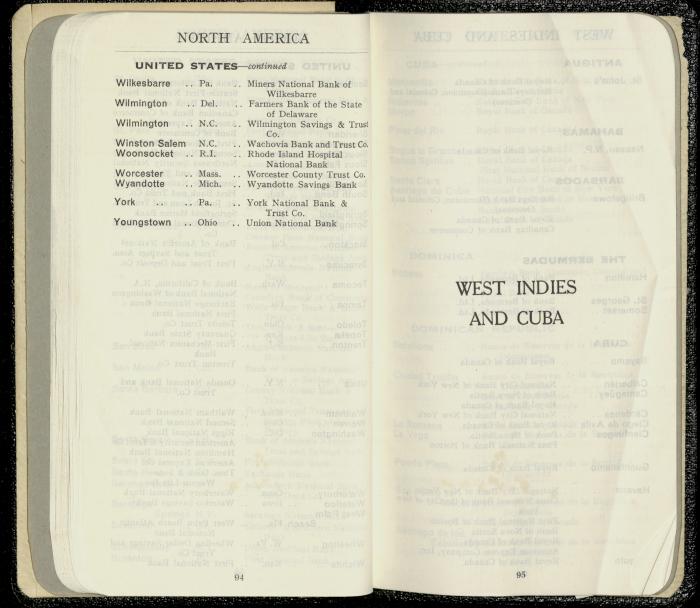 NORTH AMERICA
UNITED STATES—continued
Wilkesbarre .. Pa. .. Miners National Bank of
Wilkesbarre
Wilmington .. Del. .. Farmers Bank of the State
of Delaware
Wilmington .. N.C. .. Wilmington Savings & Trust
Co.
Winston Salem N.C. .. Wachovia Bank and Trust Co.
Woonsocket .. R.I. .. Rhode Island Hospital
National Bank
Worcester .. Mass. .. Worcester County Trust Co.
Wyandotte .. Mich. .. Wyandotte Savings Bank
York .. .. Pa. .. York National Bank &
Trust Co.
Youngstown .. Ohio .. Union National Bank
94
WEST INDIES
AND CUBA
95